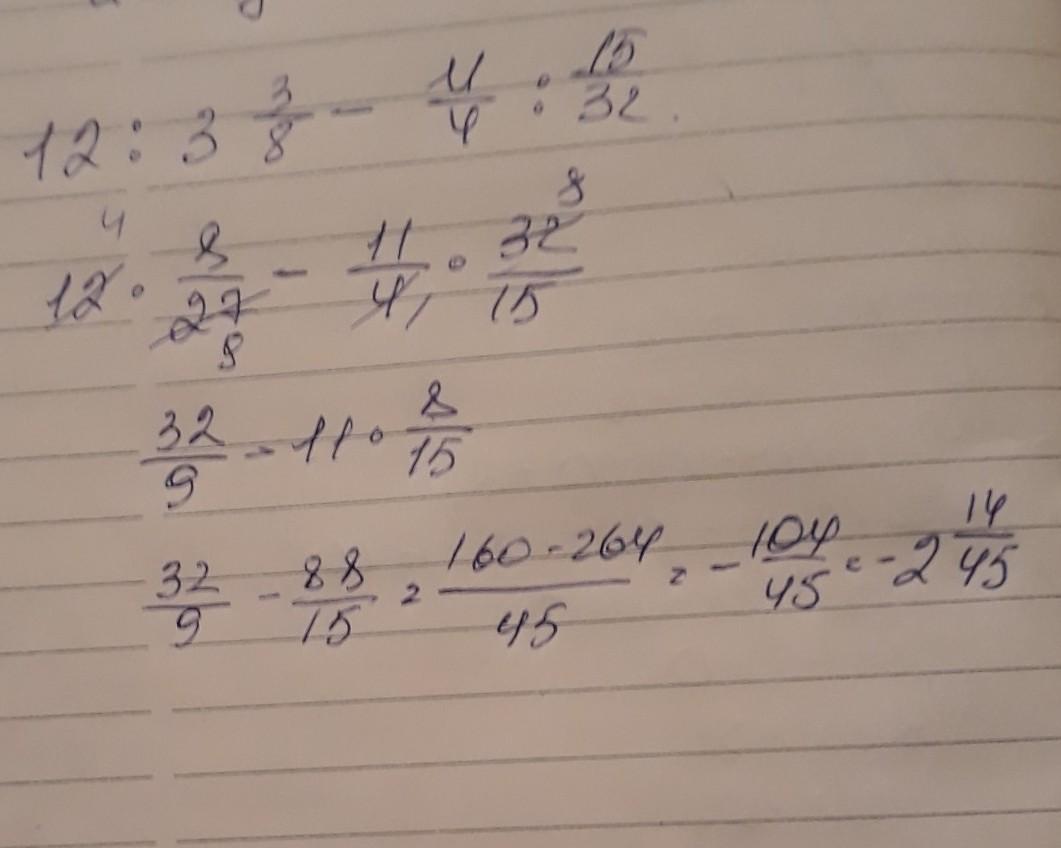 12 : 3 3/8 - 11/4 : 15/32.
4 8
12 · 8/27 - 11/4 · 32/15
9 1
32/9 - 11 · 8/15
32/9 - 88/15 = (160-264)/45 = -104/45 = -2 14/45